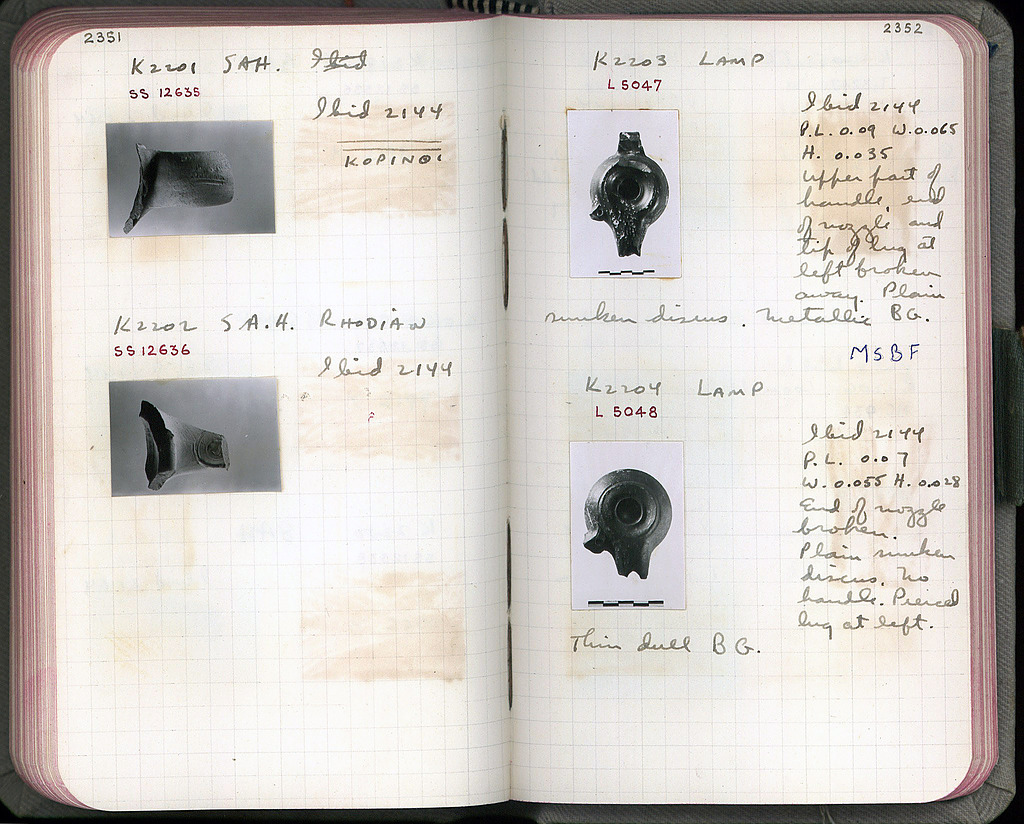 2351
K2201 SAH. Ibid
SS 12635
Ibid 2144
KOPINOI
K2202 S.A.H. RHODIAN
SS 12636
Ibid 2144
2352
K2203 LAMP
L 5047
Ibid 2144
P.L. 0.09 W. 0.065
H. 0.035
Upper part of
handle, end
of nozzle and
tip of lug at
left broken
away. Plain
sunken discus. Metallic BG.
MSBF
K2204 LAMP
L 5048
Ibid 2144
P.L. 0.07
W. 0.055 H. 0.028
End of nozzle
broken.
Plain sunken
discus. No
handle. Pierced
lug at left.
Thin dull BG.